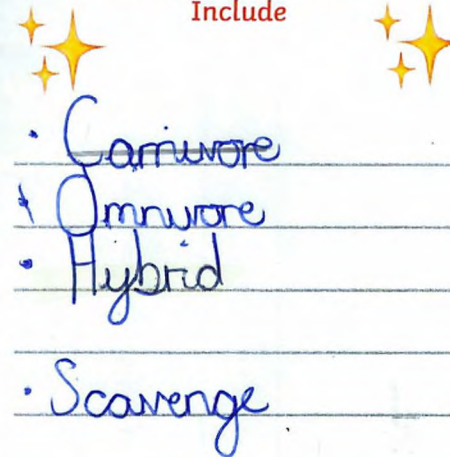 Include
· Carnivore
· Omnivore
· Hybrid
· Scavenge